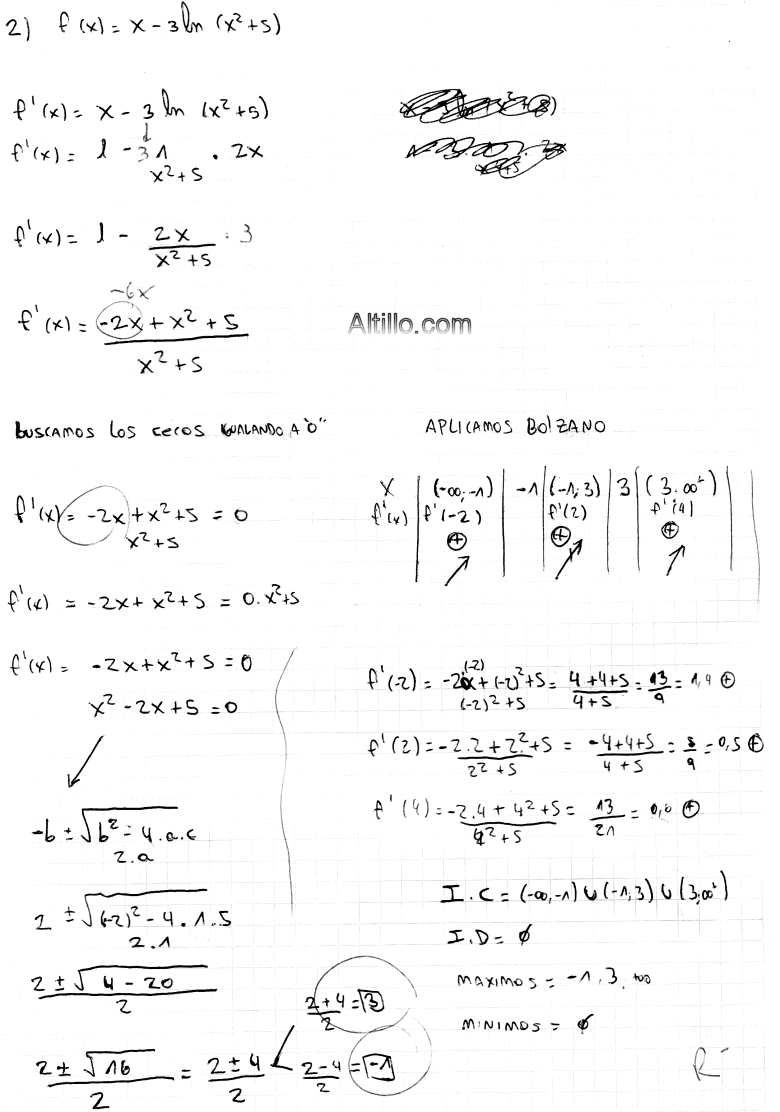 2) f(x) = x - 3 ln (x²+5)
f'(x) = x - 3 ln (x²+5)
f'(x) = 1 - 3 1/(x²+5) . 2x
f'(x) = 1 - 2x/(x²+5) . 3
-6x
f'(x) = (-2x + x² + 5)/(x² + 5)
Altillo.com
BUSCAMOS LOS CEROS IGUALANDO A "0"
f'(x) = (-2x + x² + 5)/(x² + 5) = 0
f'(x) = -2x + x² + 5 = 0 . x²+5
f'(x) = -2x + x² + 5 = 0
x² - 2x + 5 = 0
-b ± √(b² - 4.a.c) / 2.a
2 ± √((-2)² - 4.1.5) / 2.1
(2 ± √(4 - 20)) / 2
(2 ± √16) / 2 = (2 ± 4) / 2
(2+4)/2 = 3
(2-4)/2 = -1
APLICAMOS BOLZANO
X | (-∞;-1) | -1 | (-1;3) | 3 | (3.∞⁺)
f'(x) | f'(-2) | f'(2) | f'(4)
⊕ ⊕ ⊕
↗ ↗ ↗
f'(-2) = (-2(-2) + (-2)² + 5)/((-2)² + 5) = (4+4+5)/(4+5) = 13/9 = 1,4 ⊕
f'(2) = (-2.2 + 2² + 5)/(2² + 5) = (-4+4+5)/(4+5) = 5/9 = 0,5 ⊕
f'(4) = (-2.4 + 4² + 5)/(4² + 5) = 13/21 = ⊕
I.C = (-∞,-1) ∪ (-1;3) ∪ (3;∞⁺)
I.D = ∅
MAXIMOS = -1, 3, +∞
MINIMOS = ∅
R⁻